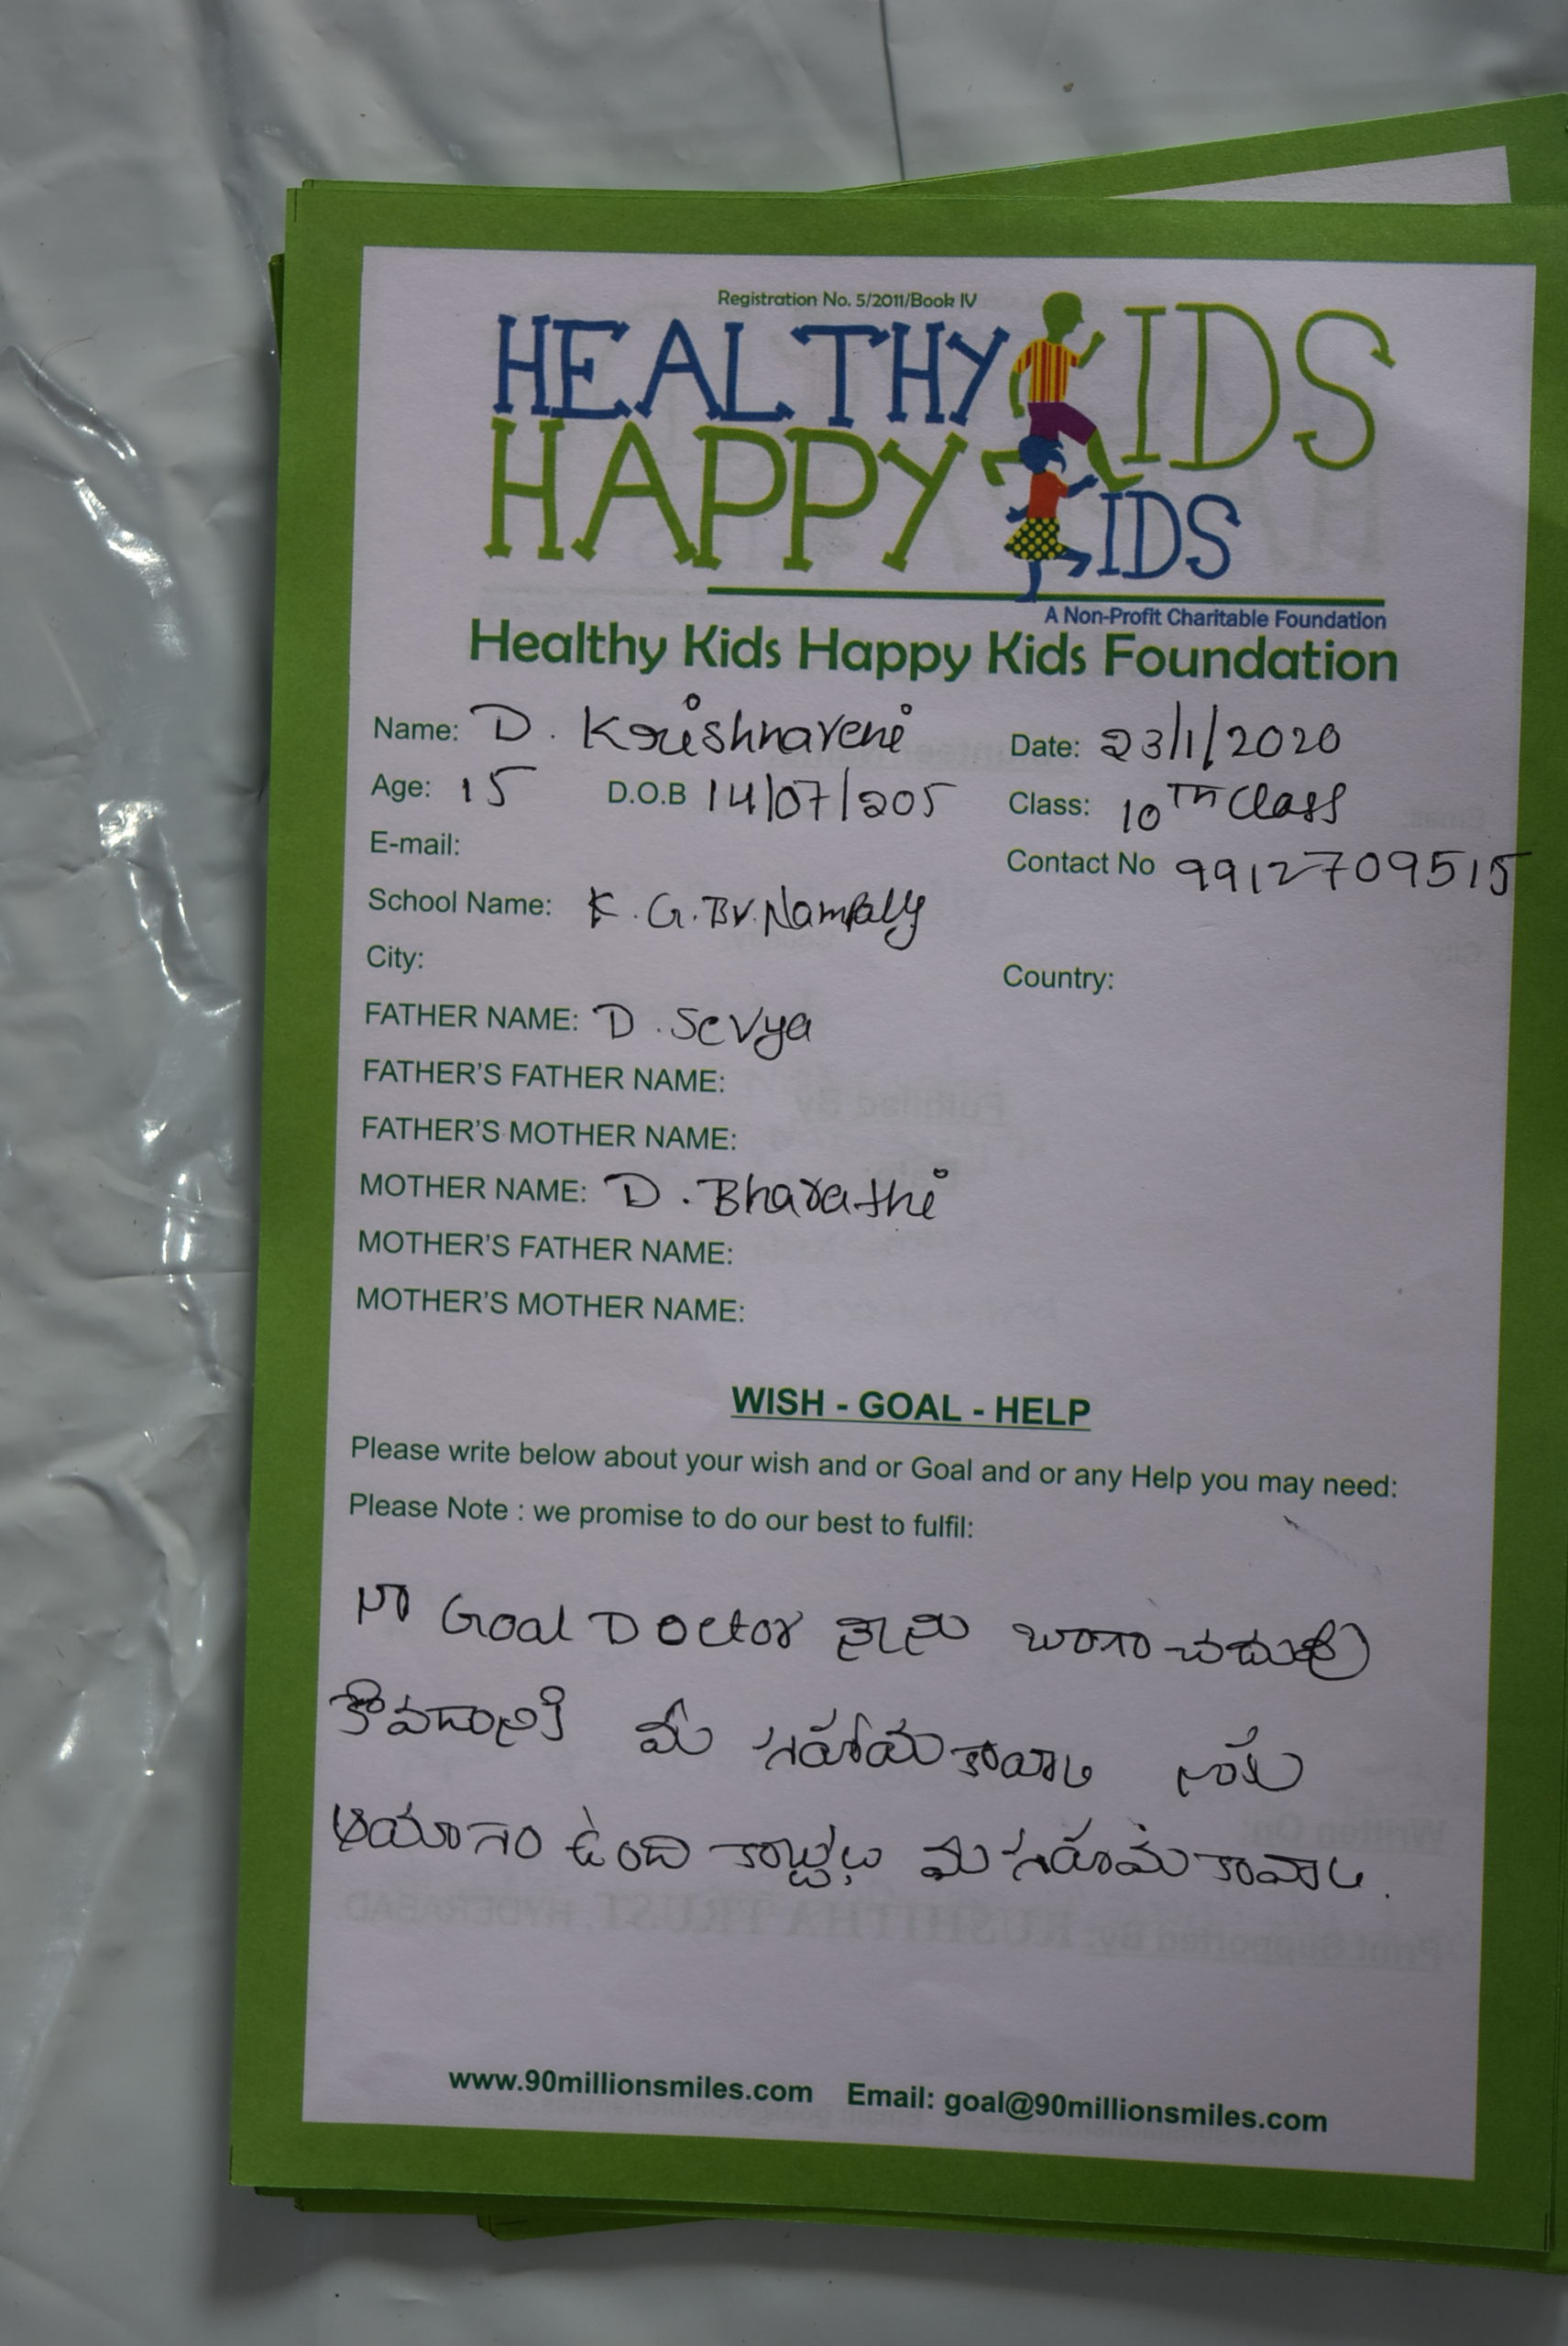 Registration No. 5/2011/Book IV
HEALTHY KIDS
HAPPY KIDS
A Non-Profit Charitable Foundation
Healthy Kids Happy Kids Foundation
Name: D. Krishnaveni Date: 23/1/2020
Age: 15 D.O.B 14/07/205 Class: 10TH Class
E-mail: Contact No 9912709515
School Name: K.G.BV.Nampally
City: Country:
FATHER NAME: D. Sevya
FATHER'S FATHER NAME:
FATHER'S MOTHER NAME:
MOTHER NAME: D. Bharathi
MOTHER'S FATHER NAME:
MOTHER'S MOTHER NAME:
WISH - GOAL - HELP
Please write below about your wish and or Goal and or any Help you may need:
Please Note : we promise to do our best to fulfil:
నా Goal Doctor నాను బాగా
మీ
ఉంది
www.90millionsmiles.com Email: goal@90millionsmiles.com